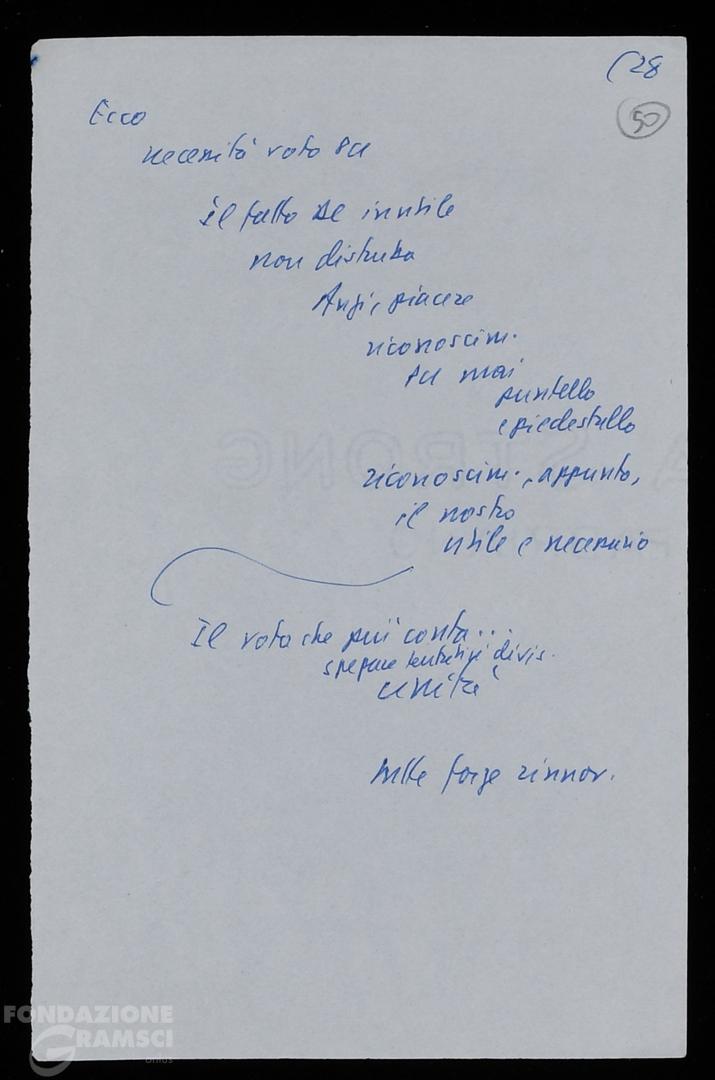 (28
50
Ecco
necessità voto PCI
il fatto inutile
non disturba
Anzi, piacere
riconoscim.
PCI mai
puntello
e piedestallo
riconoscim., appunto,
il nostro
utile e necessario
Il voto che più conta...
tentativi divis.
unità
forze rinnov.
FONDAZIONE
GRAMSCI
onlus